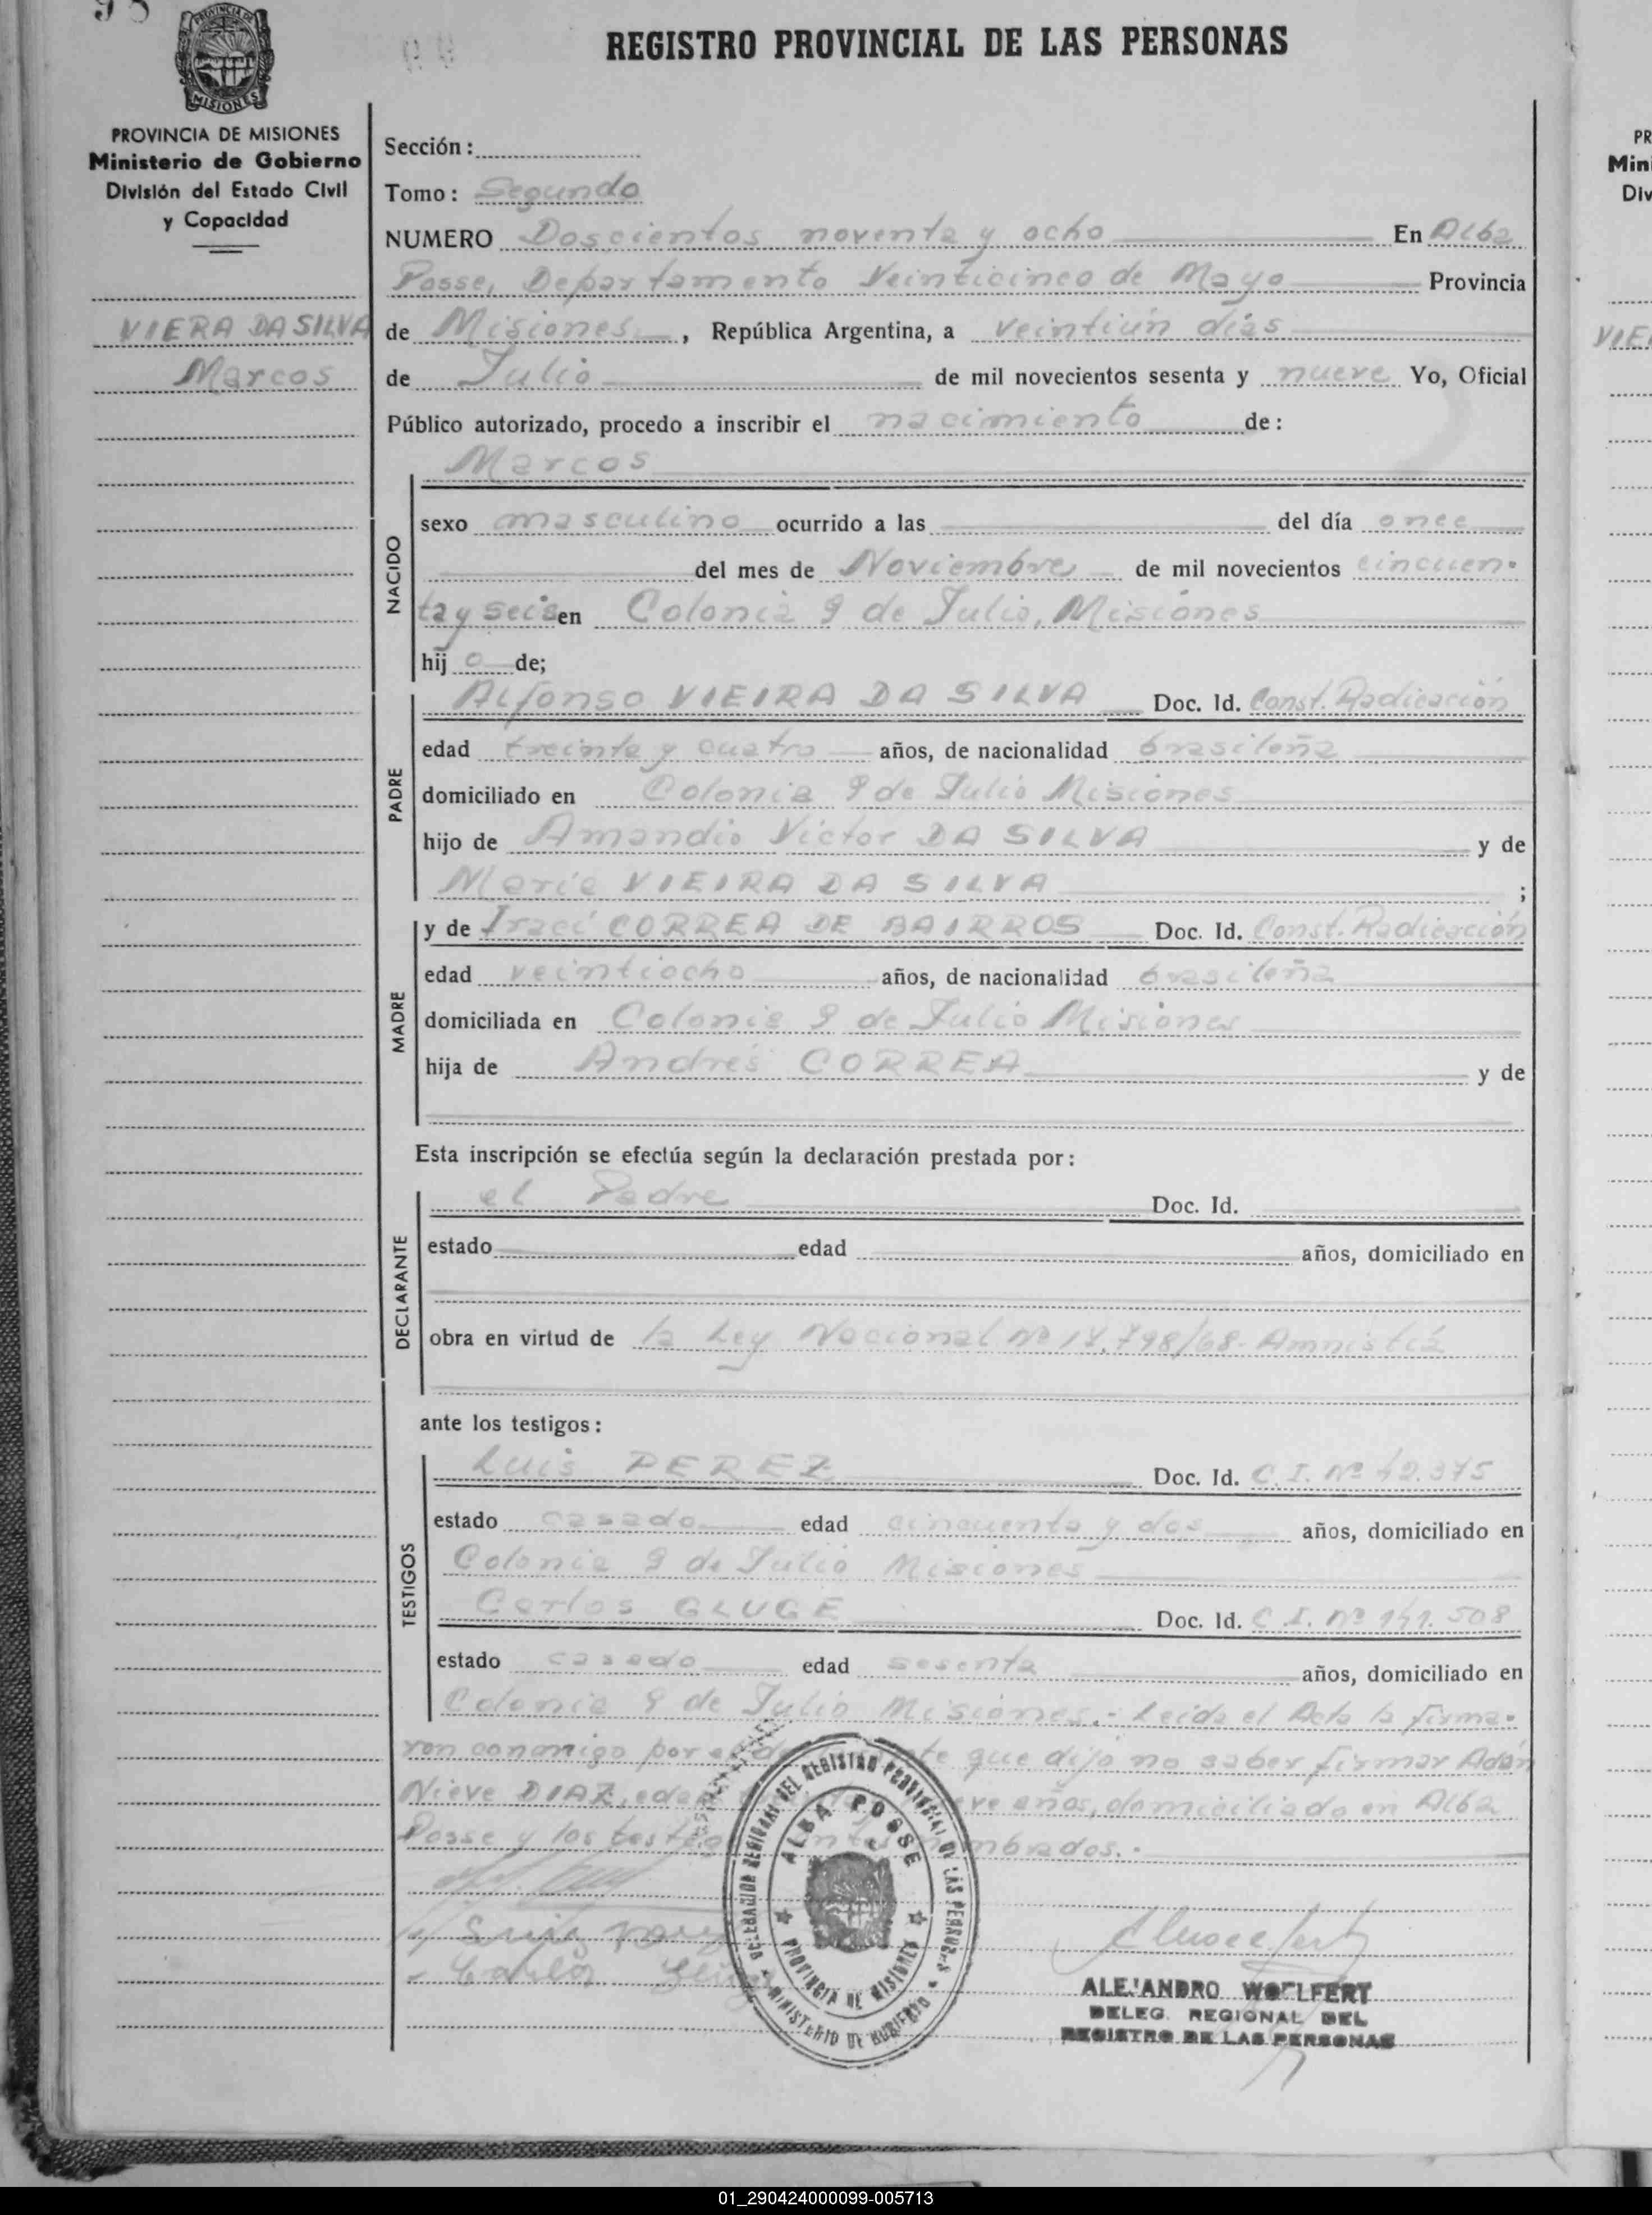 98
PROVINCIA DE
MISIONES
REGISTRO PROVINCIAL DE LAS PERSONAS
PROVINCIA DE MISIONES
Ministerio de Gobierno
División del Estado Civil
y Capacidad
VIERA DA SILVA
Marcos
Sección:
Tomo: Segundo
NUMERO Doscientos noventa y ocho En Alba
Posse, Departamento Veinticinco de Mayo Provincia
de Misiones, República Argentina, a veintiún días
de Julio de mil novecientos sesenta y nueve Yo, Oficial
Público autorizado, procedo a inscribir el nacimiento de:
Marcos
NACIDO
sexo masculino ocurrido a las del día once
del mes de Noviembre de mil novecientos cincuen-
ta y seis en Colonia 9 de Julio, Misiones
hij o de;
PADRE
Alfonso VIEIRA DA SILVA Doc. Id. Const. Radicación
edad treinta y cuatro años, de nacionalidad brasileña
domiciliado en Colonia 9 de Julio Misiones
hijo de Amandio Victor DA SILVA y de
María VIEIRA DA SILVA ;
MADRE
y de Iraci CORREA DE BAIRROS Doc. Id. Const. Radicación
edad veintiocho años, de nacionalidad brasileña
domiciliada en Colonia 9 de Julio Misiones
hija de Andrés CORREA y de
Esta inscripción se efectúa según la declaración prestada por:
DECLARANTE
el Padre Doc. Id.
estado edad años, domiciliado en
obra en virtud de la Ley Nacional nº 17.798/68- Amnistía
ante los testigos:
TESTIGOS
Luis PEREZ Doc. Id. C.I. Nº 42.375
estado casado edad cincuenta y dos años, domiciliado en
Colonia 9 de Julio Misiones
Carlos GLUGE Doc. Id. C.I. nº 141.508
estado casado edad sesenta años, domiciliado en
Colonia 9 de Julio Misiones.- Leída el Acta la firma-
ron conmigo por el que dijo no saber firmar Adán
Nieve DIAZ, edad años, domiciliado en Alba
Posse y los testigos nombrados.-
DELEGACION REGIONAL DEL REGISTRO PROVINCIAL DE LAS PERSONAS
MINISTERIO DE GOBIERNO
ALBA POSSE
PROVINCIA DE MISIONES
Luis
Carlos
ALEJANDRO WOELFERT
DELEG. REGIONAL DEL
REGISTRO DE LAS PERSONAS
PR
Min
Div
VIE
01_290424000099-005713